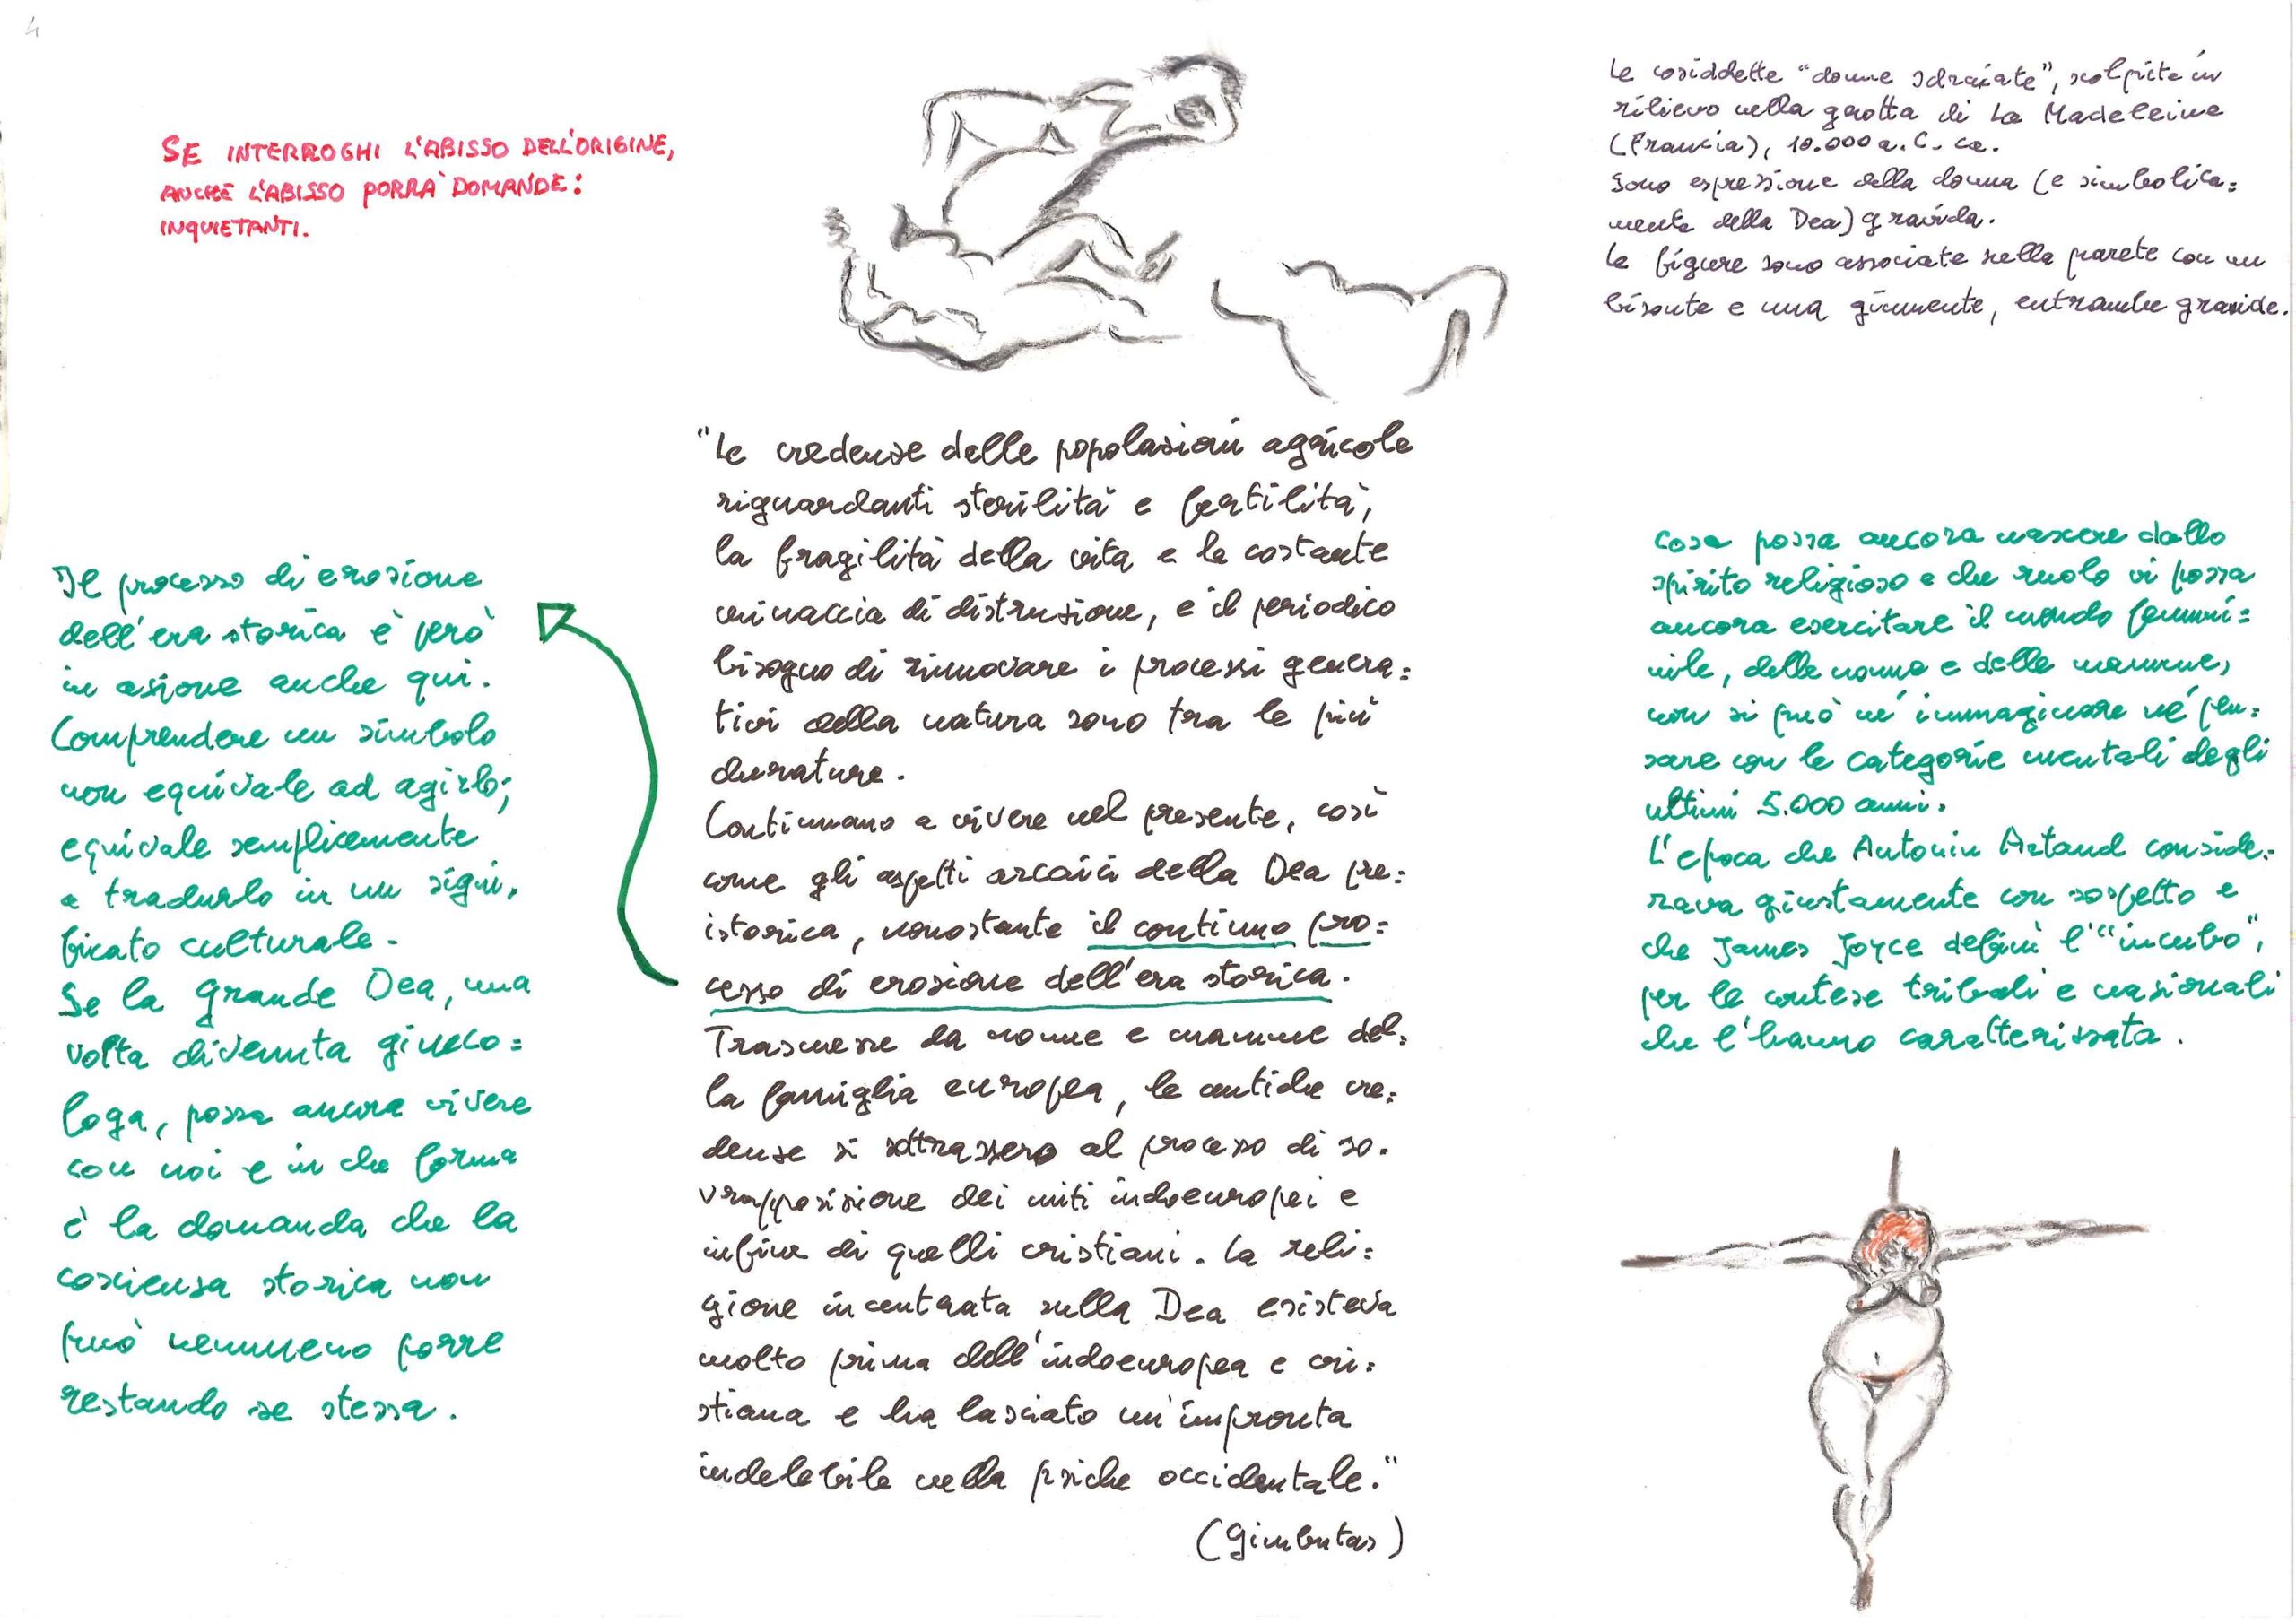 4
SE INTERROGHI L'ABISSO DELL'ORIGINE,
ANCHE L'ABISSO PORRÀ DOMANDE:
INQUIETANTI.
Le cosiddette "donne sdraiate", scolpite in
rilievo nella grotta di La Madeleine
(Francia), 10.000 a.C. ca.
Sono espressione della donna (e simbolica=
mente della Dea) gravida.
Le figure sono associate nella parete con un
bisonte e una giumente, entrambe gravide.
"Le credenze delle popolazioni agricole
riguardanti sterilità e fertilità,
la fragilità della vita e la costante
minaccia di distruzione, e il periodico
bisogno di rinnovare i processi genera=
tivi della natura sono tra le più
durature.
Continuano a vivere nel presente, così
come gli aspetti arcaici della Dea pre=
istorica, nonostante il continuo pro=
cesso di erosione dell'era storica.
Trasmesse da nonne e mamme del=
la famiglia europea, le antiche cre=
denze si sottrassero al processo di so=
vrapposizione dei miti indoeuropei e
infine di quelli cristiani. La reli=
gione incentrata sulla Dea esisteva
molto prima dell'indoeuropea e cri=
stiana e ha lasciato un'impronta
indelebile nella psiche occidentale."
(Gimbutas)
Il processo di erosione
dell'era storica è però
in azione anche qui.
Comprendere un simbolo
non equivale ad agirlo;
equivale semplicemente
a tradurlo in un signi=
ficato culturale.
Se la Grande Dea, una
volta divenuta gineco=
loga, possa ancora vivere
con noi e in che forma
è la domanda che la
coscienza storica non
può nemmeno porre
restando se stessa.
Cosa possa ancora nascere dallo
spirito religioso e che ruolo vi possa
ancora esercitare il mondo femmi=
nile, delle nonne e delle mamme,
non si può né immaginare né pen=
sare con le categorie mentali degli
ultimi 5.000 anni.
L'epoca che Antonin Artaud conside=
rava giustamente con sospetto e
che James Joyce definì l'"incubo",
per le contese tribali e nazionali
che l'hanno caratterizzata.